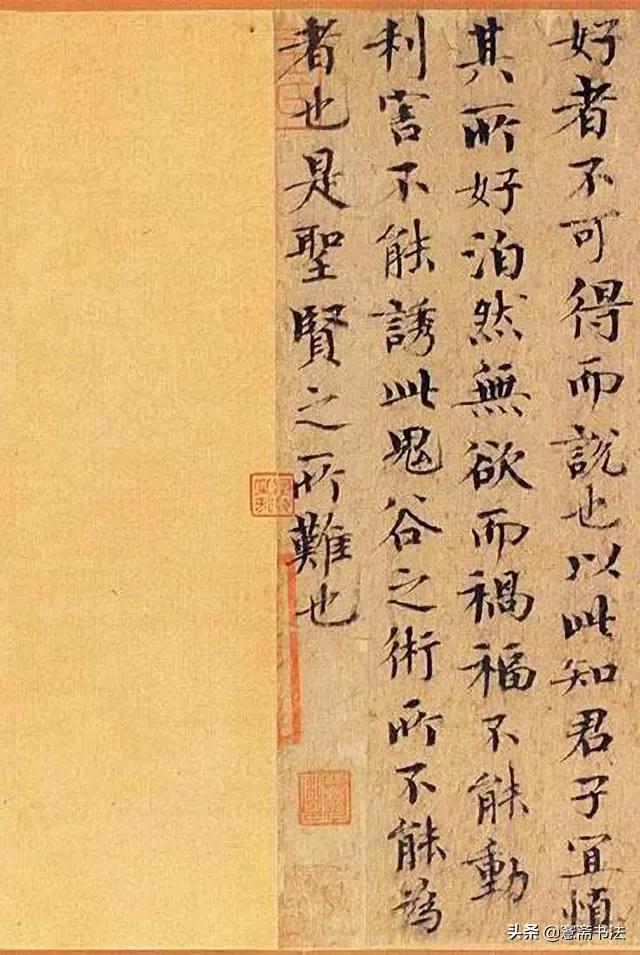 好者不可得而說也以此知君子宜慎
其所好泊然無欲而禍福不能動
利害不能誘此鬼谷之術所不能為
者也是聖賢之所難也
头条@窓斋书法